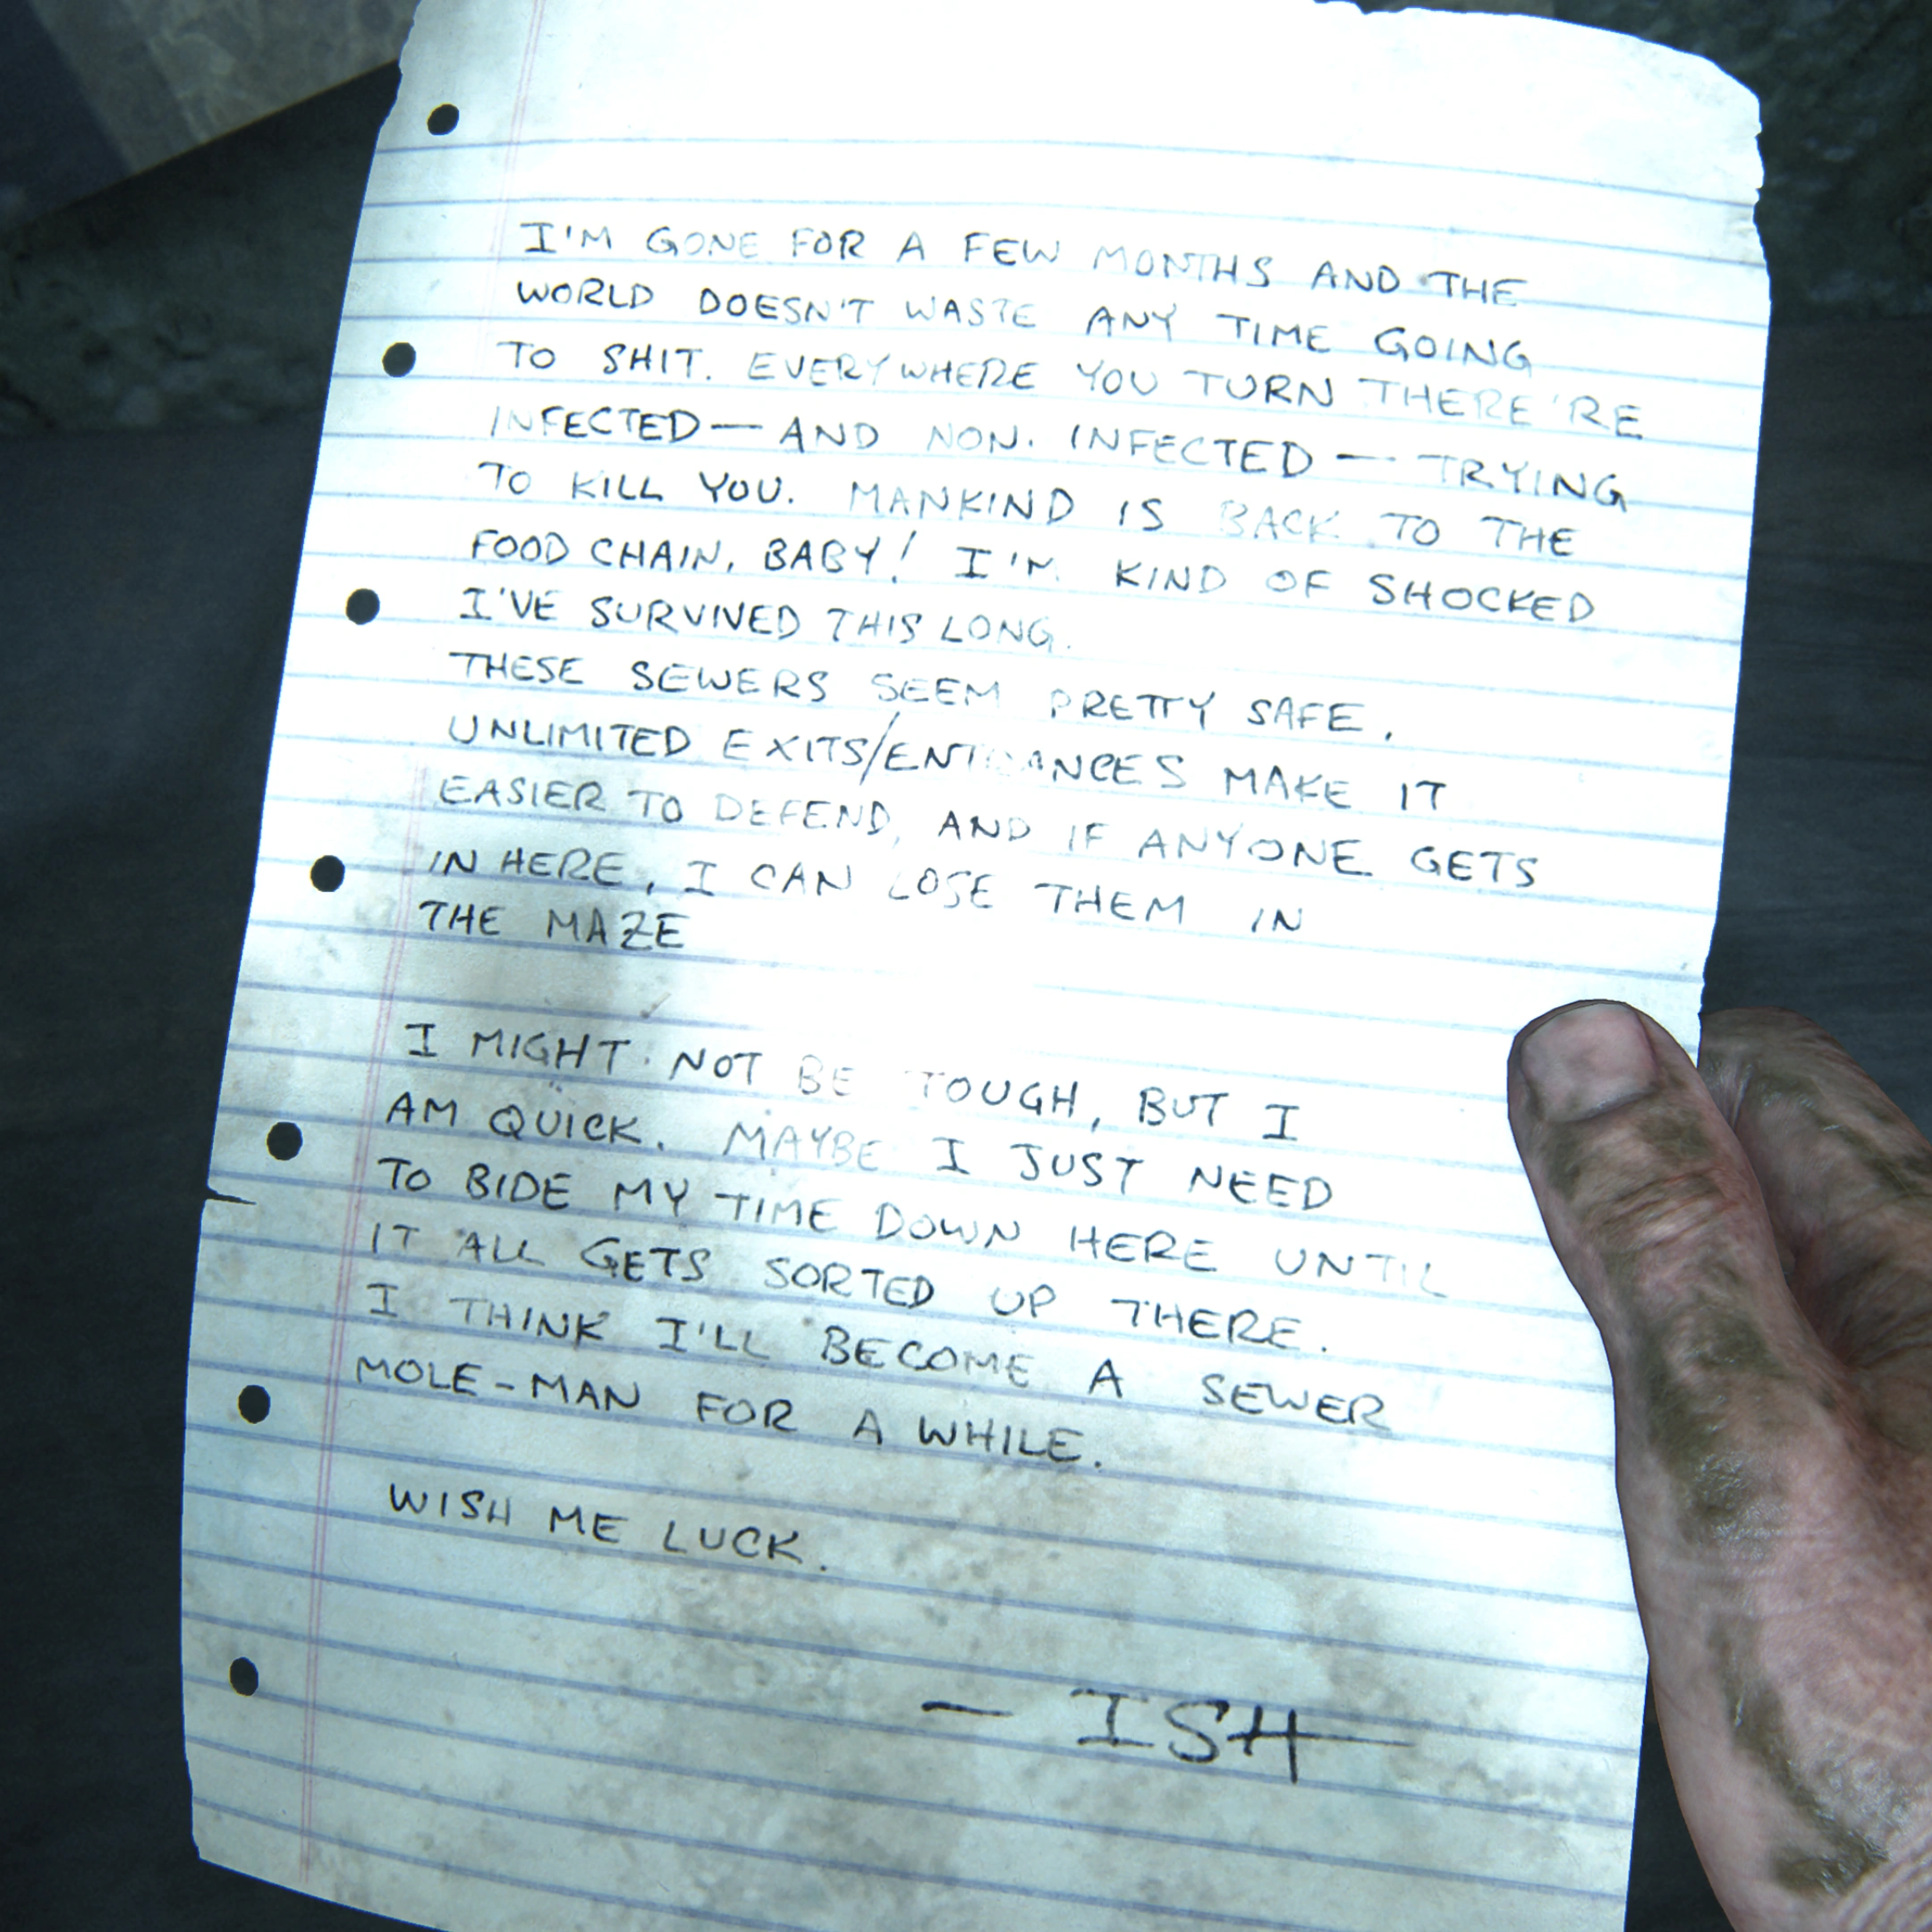 I'M GONE FOR A FEW MONTHS AND THE
WORLD DOESN'T WASTE ANY TIME GOING
TO SHIT. EVERYWHERE YOU TURN THERE'RE
INFECTED — AND NON. INFECTED — TRYING
TO KILL YOU. MANKIND IS BACK TO THE
FOOD CHAIN, BABY! I'M KIND OF SHOCKED
I'VE SURVIVED THIS LONG.
THESE SEWERS SEEM PRETTY SAFE.
UNLIMITED EXITS/ENTRANCES MAKE IT
EASIER TO DEFEND, AND IF ANYONE GETS
IN HERE, I CAN LOSE THEM IN
THE MAZE
I MIGHT NOT BE TOUGH, BUT I
AM QUICK. MAYBE I JUST NEED
TO BIDE MY TIME DOWN HERE UNTIL
IT ALL GETS SORTED UP THERE.
I THINK I'LL BECOME A SEWER
MOLE-MAN FOR A WHILE.
WISH ME LUCK.
— ISH